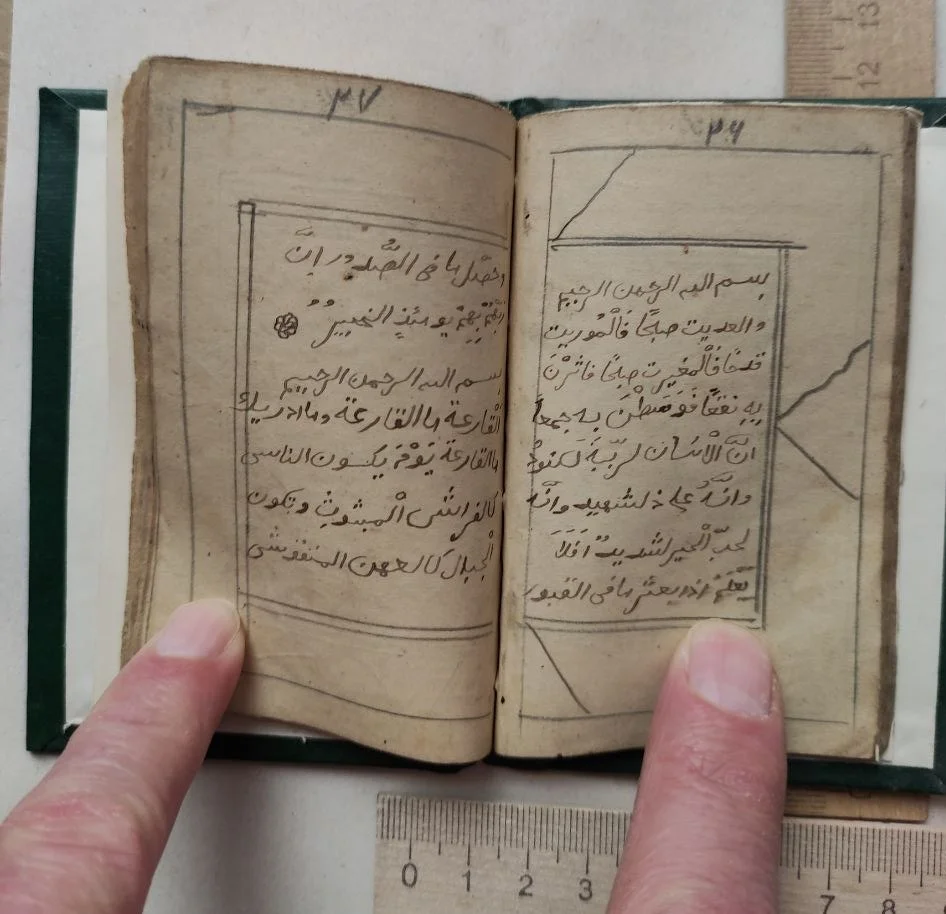 ٣٦
بسم الله الرحمن الرحيم
والعديت صبحًا فَالْمُوريت
قدحًا فَالْمغيرت صبحًا فاثرْنَ
بِهِ نقعًا فَوَسَطْنَ به جمعاً
انَّ الْانسَان لربّهِ لكنودٌ
وانّهُ على ذلك لشهيد وانّه
لحبّ الْخير لشديدٌ افَلَا
يَعْلَمُ اذا بعثر ما فى القبور
٣٧
وحصّل ما فى الصُّدور انَّ
ربَّهُمْ بِهِمْ يومئذٍ لخبيرٌ
بسم الله الرحمن الرحيم
الْقارعة ما القارعة وما ادريك
ما القارعة يَوْمَ يكون الناس
كالفراش الْمبثوثِ وتكون
الْجبال كالعهن المنفوش
0 1 2 3 7 8
12 13